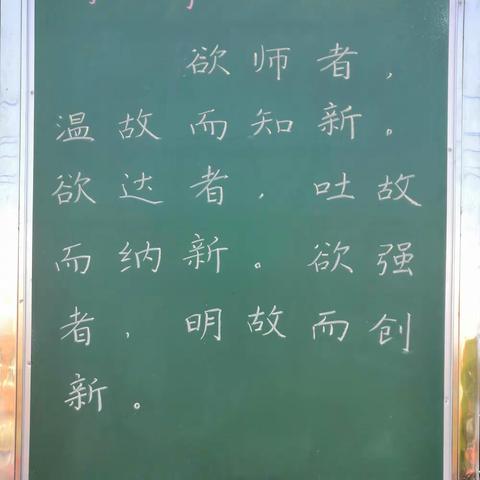 欲师者,
温故而知新。
欲达者,吐故
而纳新。欲强
者,明故而创
新。